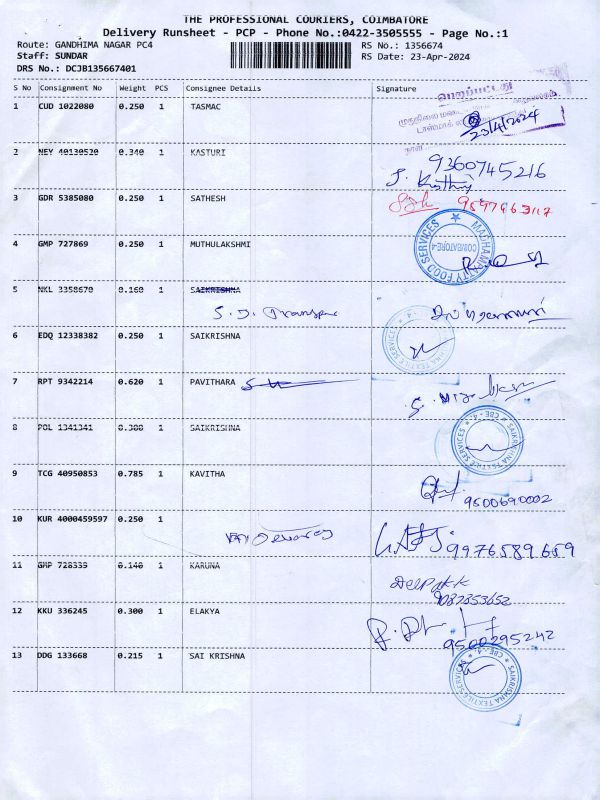 THE PROFESSIONAL COURIERS, COIMBATORE
Delivery Runsheet - PCP - Phone No.:0422-3505555 - Page No.:1
Route: GANDHIMA NAGAR PC4 RS No.: 1356674
Staff: SUNDAR RS Date: 23-Apr-2024
DRS No.: DCJB135667401
S No Consignment No Weight PCS Consignee Details Signature
பெறப்பட்டது
1 CUD 1022080 0.250 1 TASMAC
23/4/2024
2 NEY 40130520 0.340 1 KASTURI 9360745216
3 GDR 5385080 0.250 1 SATHESH
4 GMP 727869 0.250 1 MUTHULAKSHMI
MADHAMPATTY FOOD SERVICES COIMBATORE-4
5 NKL 3358670 0.160 1 SAIKRISHNA
6 EDQ 12338382 0.250 1 SAIKRISHNA
7 RPT 9342214 0.620 1 PAVITHARA
8 POL 1341341 0.300 1 SAIKRISHNA
SAIKRISHNA TEXTILE SERVICES CBE-4
9 TCG 40950853 0.785 1 KAVITHA
9500690002
10 KUR 4000459597 0.250 1
9976589659
11 GMP 728339 0.140 1 KARUNA
Deepak K
9087353652
12 KKU 336245 0.300 1 ELAKYA
9500295242
13 DDG 133668 0.215 1 SAI KRISHNA
SAIKRISHNA TEXTILE SERVICES CBE-4